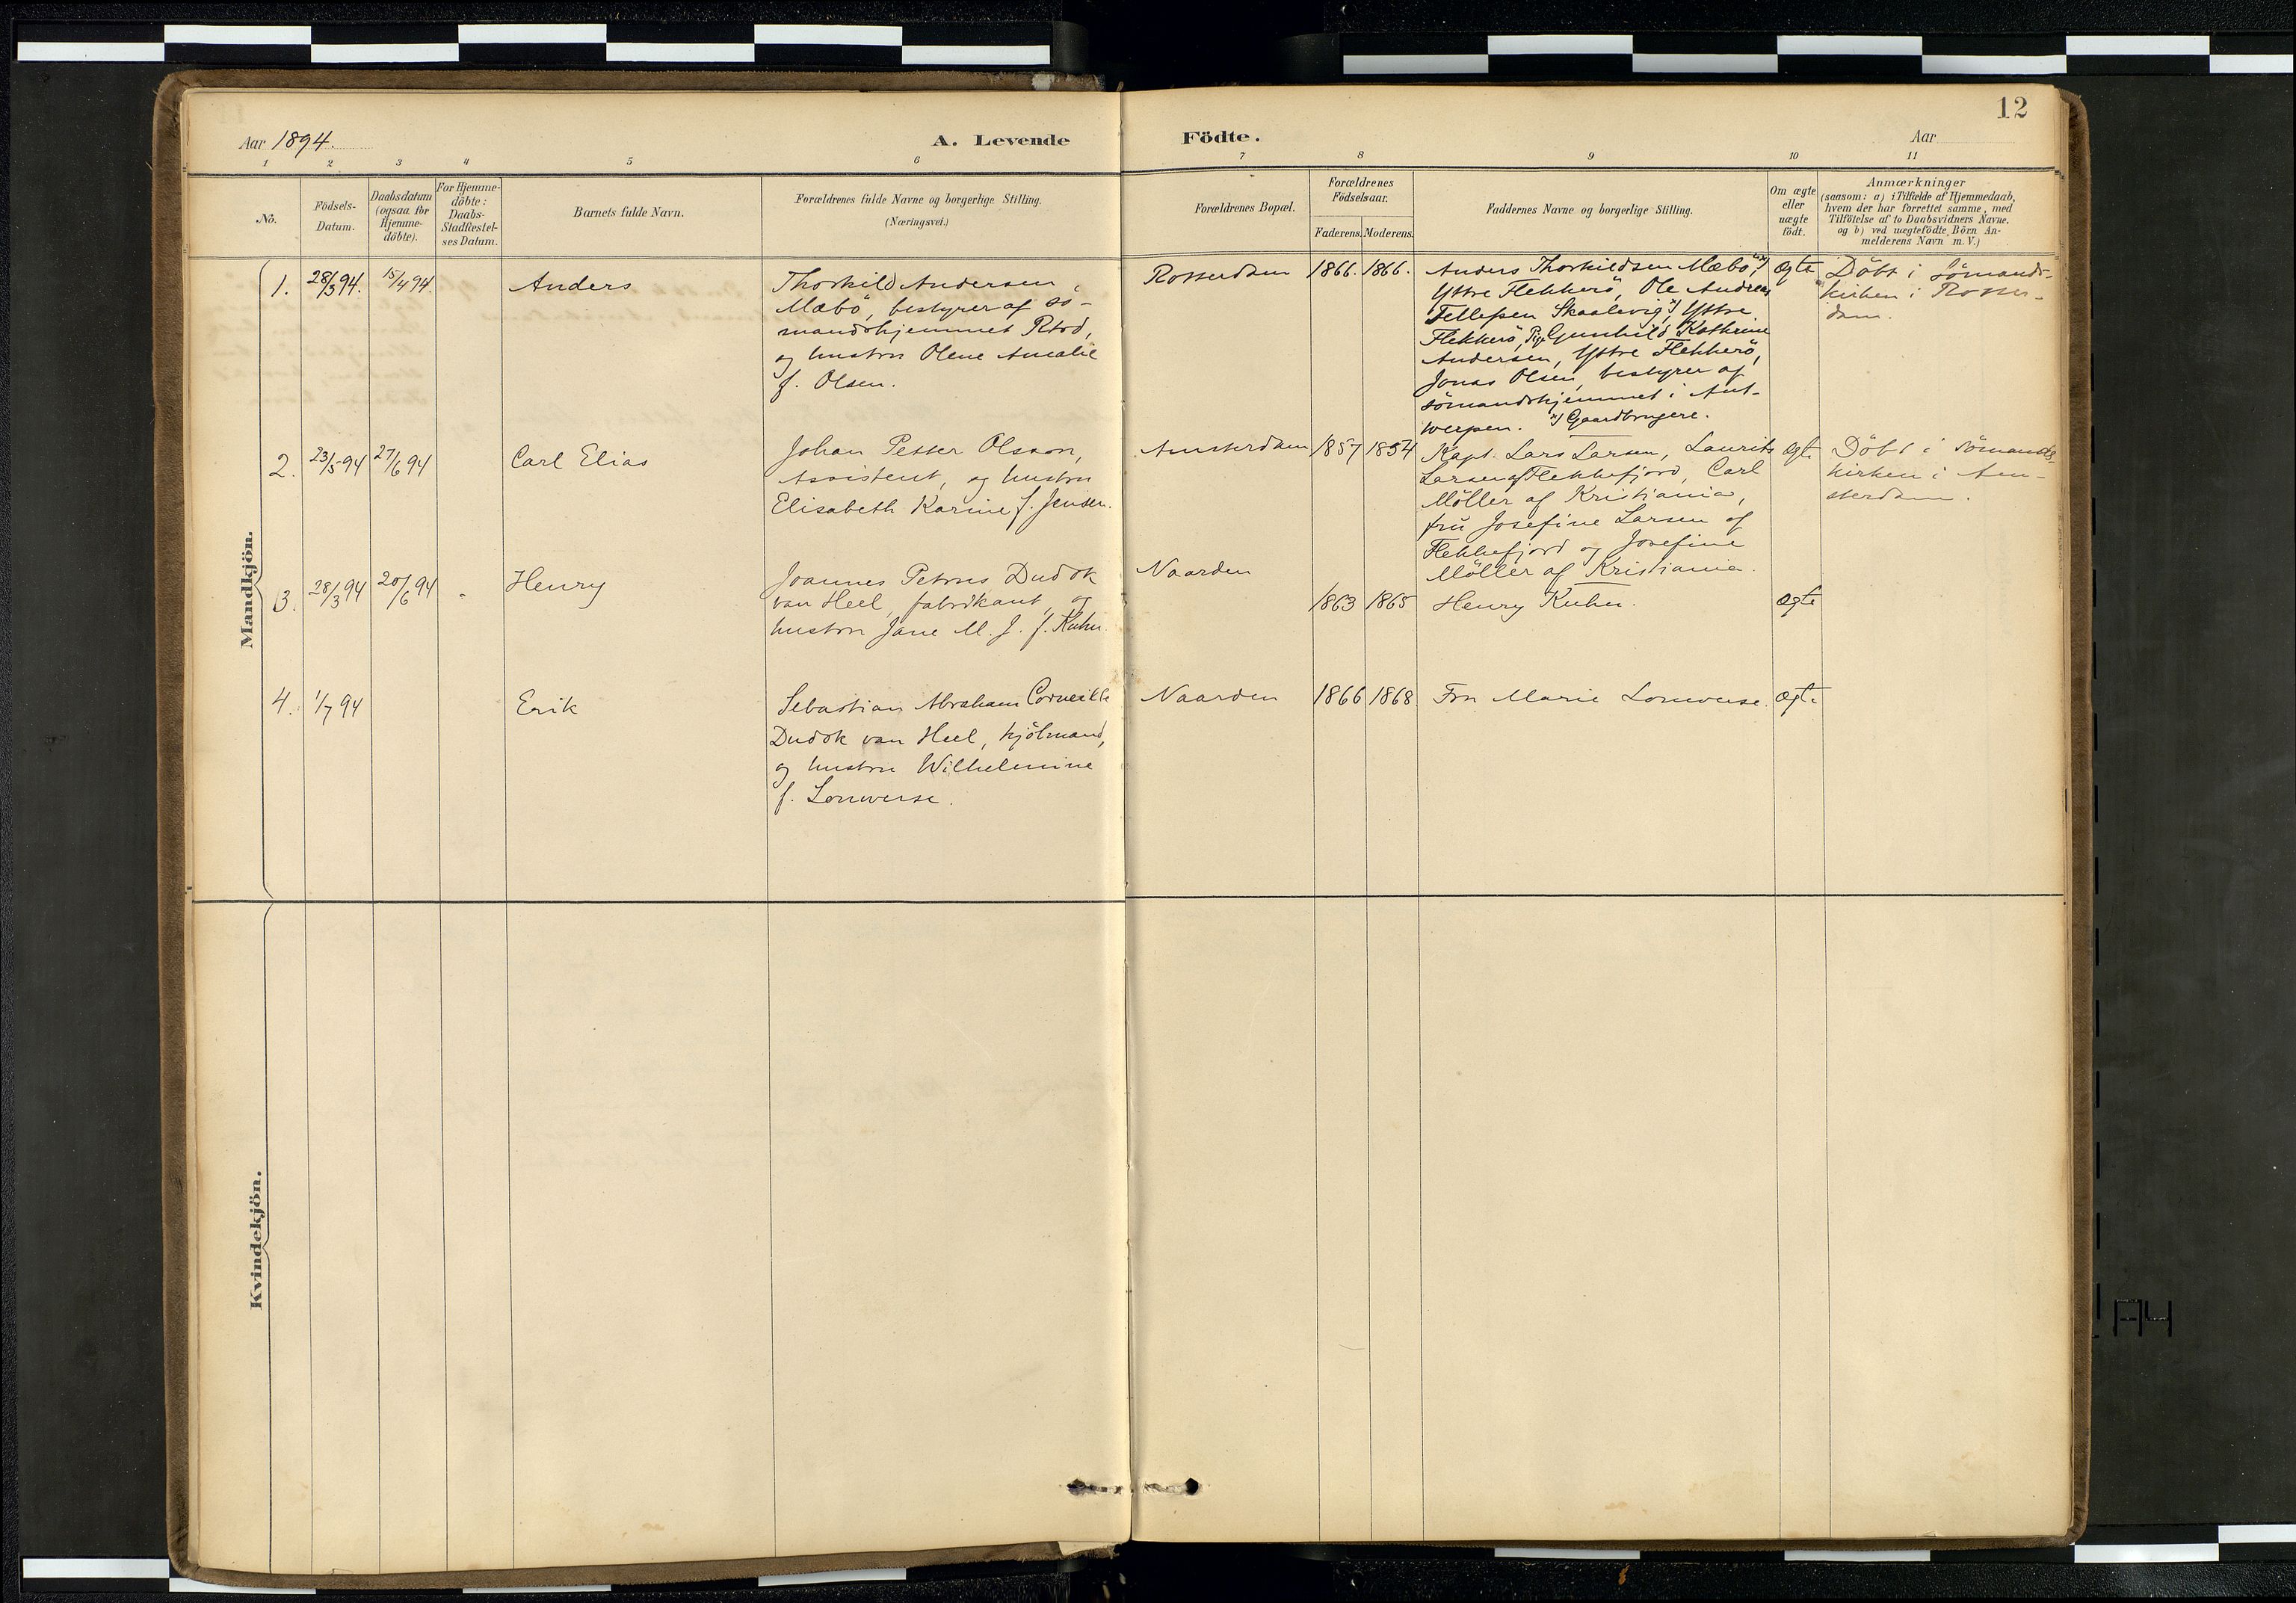 12
Aar 1894.
A. Levende Födte.
Aar
1 2 3 4 5 6 7 8 9 10 11
No.
Födsels-
Datum.
Daabsdatum
(ogsaa for
Hjemme-
döbte).
For Hjemme-
döbte:
Daabs-
Stadfestel-
ses Datum.
Barnets fulde Navn.
Forældrenes fulde Navne og borgerlige Stilling.
(Næringsvei.)
Forældrenes Bopæl.
Forældrenes
Födselsaar.
Faderens. Moderens.
Faddernes Navne og borgerlige Stilling.
Om ægte
eller
uægte
födt.
Anmærkninger
(saasom: a) i Tilfælde af Hjemmedaab,
hvem der har forrettet samme, med
Tilföielse af to Daabsvidners Navne.
og b) ved uægtefödte Börn An-
melderens Navn m. V.)
Mandkjön.
1. 28/3 94. 15/4 94. Anders
Thorkild Andersen
Mæbö, bestyrer af sö-
mandshjemmet Rtrd,
og hustru Olene Amalie
f. Olsen.
Rotterdam 1866. 1866.
Anders Thorkildsen Mæbö, x)
Yttre Flekkerö, Ole Andreas
Tellefsen Skaalevig x) Yttre
Flekkerö, Pige Gunhild Kathrine
Andersen, Yttre Flekkerö,
Jonas Olsen, bestyrer af
sömandshjemmet i Ant-
werpen. x) Gaardbrugere.
Ægte
Döbt i Sömands-
kirken i Rotter-
dam.
2. 23/5 94 27/6 94 Carl Elias
Johan Petter Olsson,
Assistent, og hustru
Elisabeth Karine f. Jensen.
Amsterdam 1857 1854
Kapt. Lars Larsen, Laurits
Larsen af Flekkefjord, Carl
Möller af Kristiania,
fru Josefine Larsen af
Flekkefjord og Josefine
Möller af Kristiania.
Ægte
Döbt i Sömands-
kirken i Am-
sterdam.
3. 28/3 94 20/6 94 - Henry
Joannes Petrus Dudok
van Heel, fabrikant, og
hustru Jane M. J. f. Kuhn.
Naarden
1863 1865 Henry Kuhn. Ægte
4. 1/7 94 Erik
Sebastian Abraham Corneille
Dudok van Heel, kjölmand,
og hustru Wilhelmine
f. Lonwerse.
Naarden 1866 1868 Fru Marie Lonwerse. Ægte
Kvindekjön.